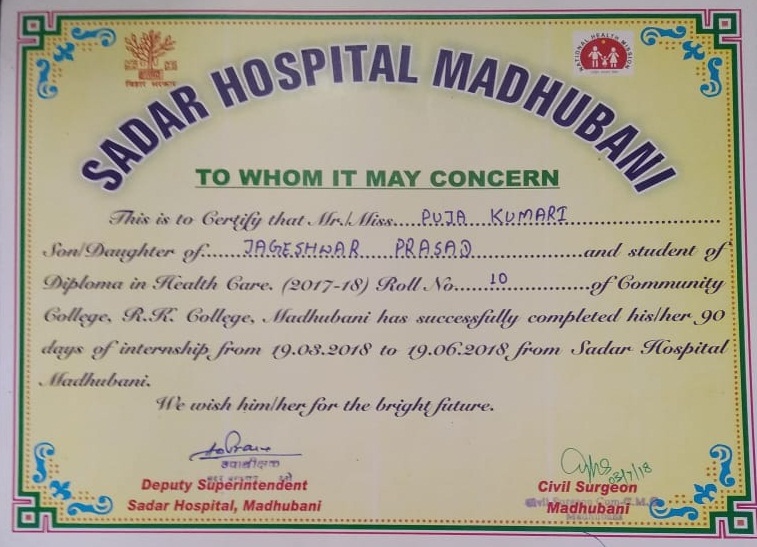 बिहार सरकार
NATIONAL HEALTH MISSION
SADAR HOSPITAL MADHUBANI
TO WHOM IT MAY CONCERN
This is to Certify that Mr./Miss....PUJA KUMARI
Son/Daughter of......JAGESHWAR PRASAD......and student of
Diploma in Health Care. (2017-18) Roll No.....10......of Community
College, R.K. College, Madhubani has successfully completed his/her 90
days of internship from 19.03.2018 to 19.06.2018 from Sadar Hospital
Madhubani.
We wish him/her for the bright future.
उपाधीक्षक
03/7/18
Deputy Superintendent
Civil Surgeon
Sadar Hospital, Madhubani
Madhubani
Civil Surgeon
Madhubani